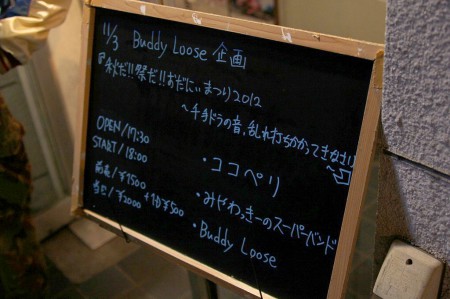 11/3 Buddy Loose 企画
『秋だ!!祭だ!!おだにぃまつり2012
〜千手ドラの音、乱れ打ちかかってきなさい!〜』
OPEN/17:30
START/18:00
前売/¥1500
当日/¥2000 +1D¥500
・ココペリ
・みぞわっきーのスーパーバンド
・Buddy Loose